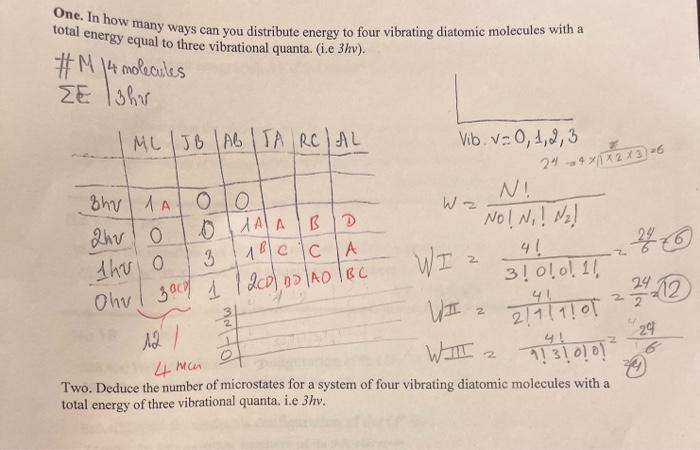 One. In how many ways can you distribute energy to four vibrating diatomic molecules with a
total energy equal to three vibrational quanta. (i.e 3hv).
#M | 4 molecules
ΣE | 3hv
Vib. v=0,1,2,3
24 → 4 x 1 x 2 x 3 = 6
MC | JB | AB | TA | RC | AL
3hv | 1 A | 0 | 0
2hv | 0 | 0 | 1A | A | B | D
1hv | 0 | 3 | 1B | C | C | A
0hv | 3 BCD | 1 | 2CD | BD | AD | BC
3
2
1
0
12
W = N! / N0! N1! N2!
WI = 4! / 3! 0! 0! 1! = 24/6 = 6
WII = 4! / 2! 1! 1! 0! = 24/2 = 12
WIII = 4! / 1! 3! 0! 0! = 24/6
Two. Deduce the number of microstates for a system of four vibrating diatomic molecules with a
total energy of three vibrational quanta. i.e 3hv.